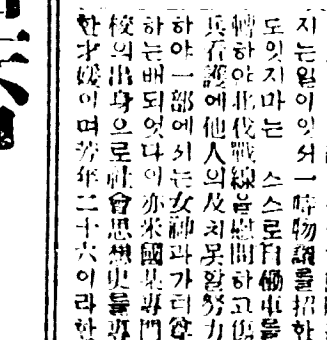 지는일이잇서一時物議를招한
도잇지마는 스스로自働車를
轉하야北伐戰線을慰問하고傷
兵看護에他人의及치못할努力
하야一部에서는女神과가티
하는배되엇다이亦米國某專門
校의出身으로社會思想史를專
한才媛이며芳年二十六이라한